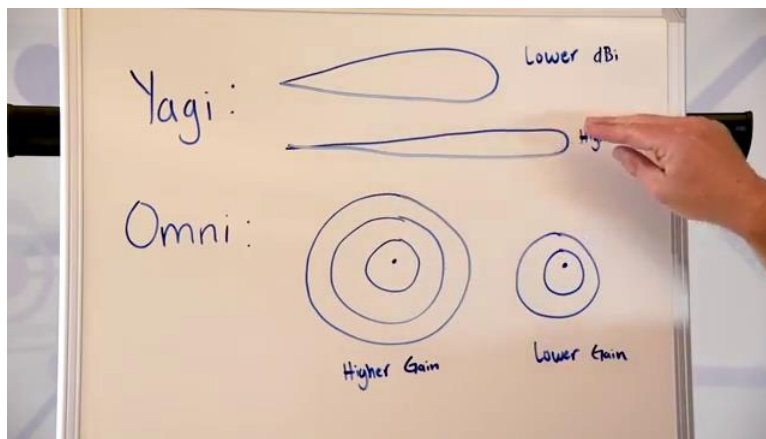 Yagi:
Lower dBi
Omni:
Higher Gain
Lower Gain